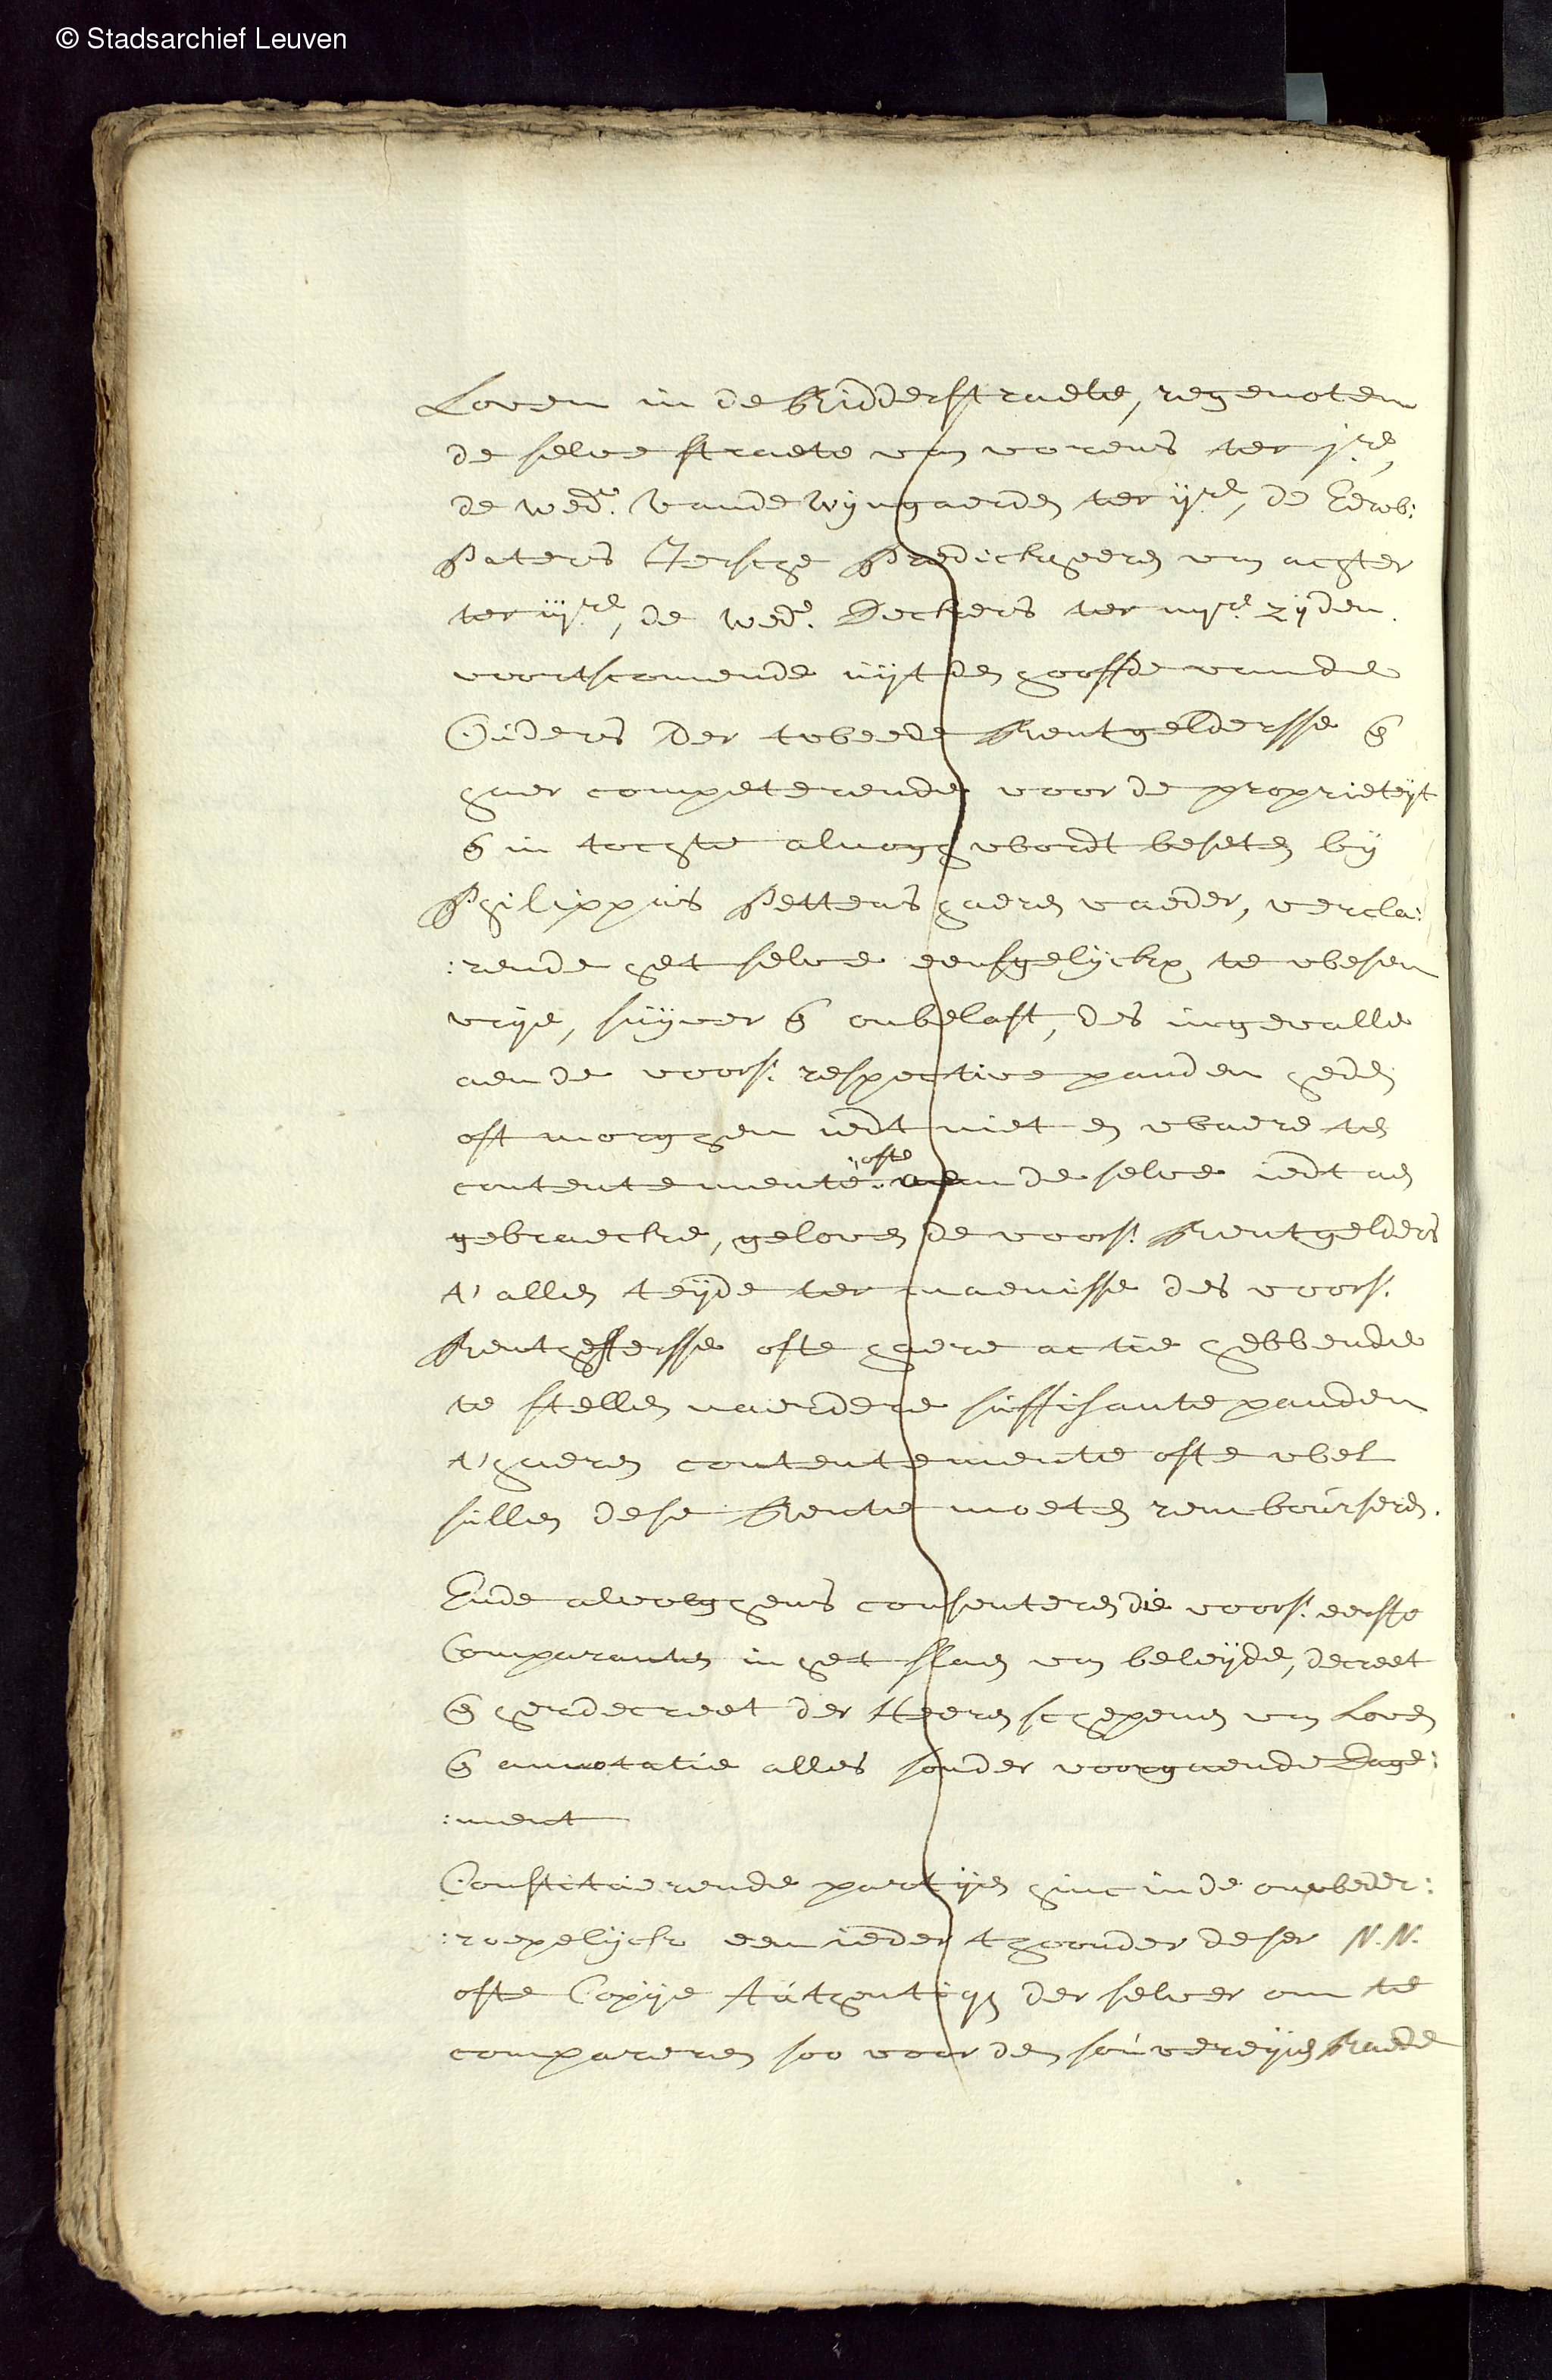 © Stadsarchief Leuven
Loven in de Ridderstraete, regenoten
de selve straete van vorens ter j.re,
de wed.e Vande Wijngaerden ter ij.re, de Eerw:
Paters Iersche Predickheeren van achter
ter iij.re, de wed.e Deckers ter iiij.re zijden
voortscomende uijt den hooffde vande
Ouders der tweede Rentgeldersse &
haer competerende voor de proprieteijt
& in tochte alnogh wordt beseten bij
Philippus Pettens haeren vaeder, vercla:
:rende het selve eensgelijckx te wesen
vrije, suijver & onbelast, des ingevalle
aen de voors: respective panden heden
oft morghen iedt niet en waere ten
contentemente ofte aen de selve iedt aen
gebraecke, geloven de voors: Rentgelders
t' allen teijde ter maenisse des voors:
Rentheffersse ofte haere actie hebbende
te stellen naerdere suffisante panden
t' haeren contentemente ofte wel
sullen dese Rente moeten rembourseren.
Ende alvolghens consenteren die voors: eerste
Comparanten in het slaen van beleijde, decreet
& herdecreet der Heeren schepenen van Loven
& annotatie alles sonder voorgaende Dage:
:ment
Constituerende partijen hinc inde onweder:
:roepelijck een ieder thoonder deser N.N.
ofte Copije Authentiq der selver om te
compareren soo voor den souvereijnen Raede